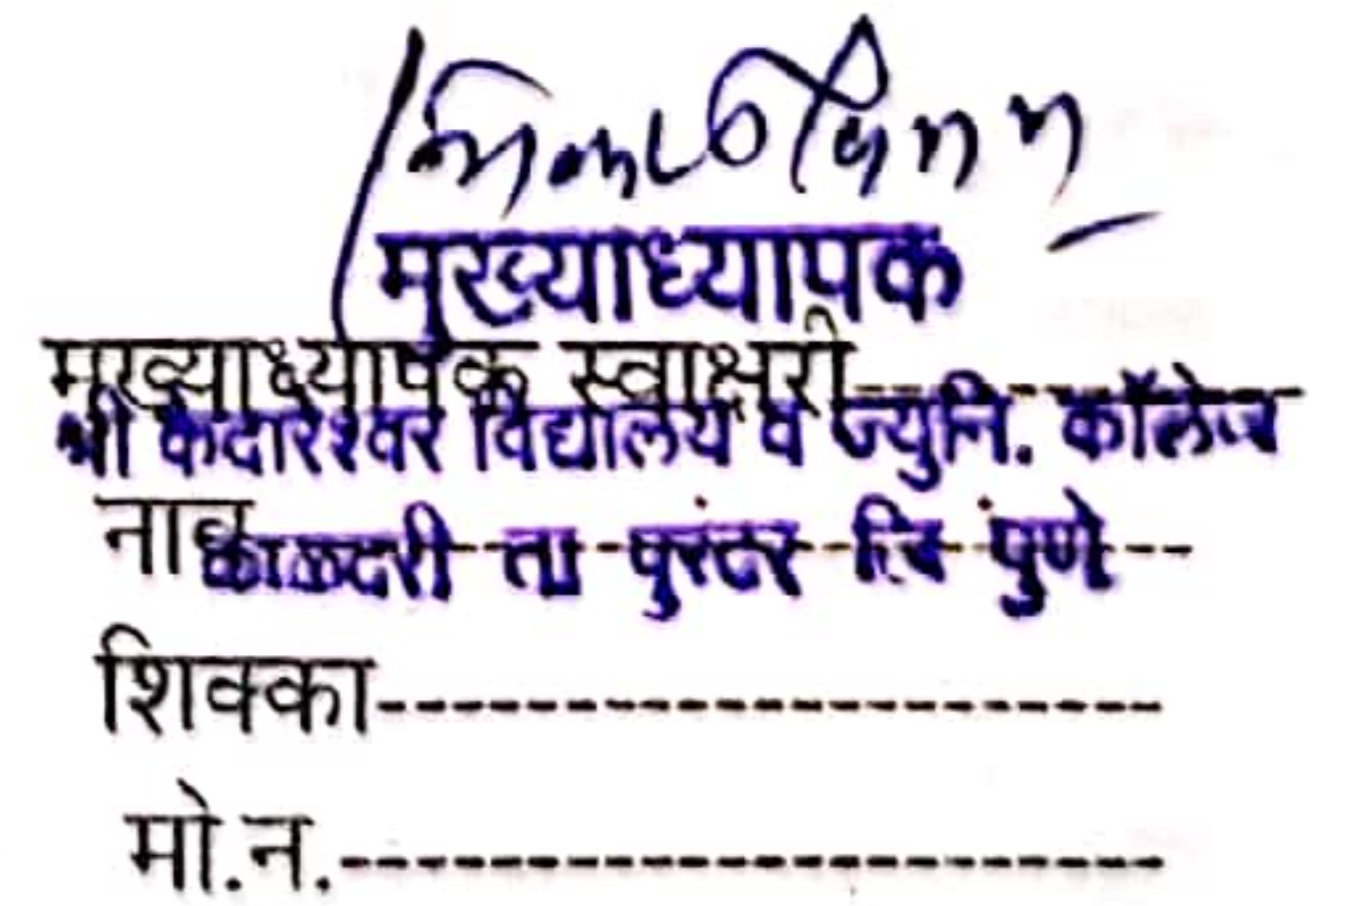 मुख्याध्यापक
मुख्याध्यापक स्वाक्षरी
श्री केदारेश्वर विद्यालय व ज्युनि. कॉलेज
नाव
काळदरी ता पुरंदर जि पुणे
शिक्का
मो.न.